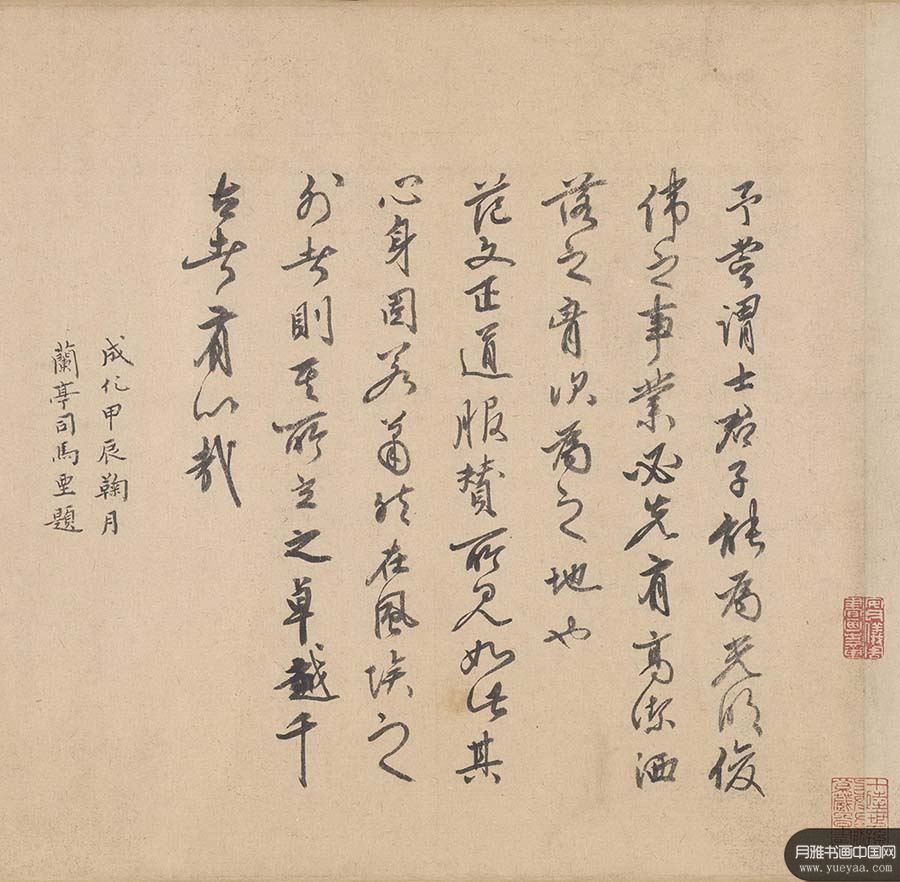 予嘗謂士君子能為光明俊
偉之事業必先有高潔洒
落之胷次為之地也
范文正道服賛所見如此其
心身固若蕭然在風埃之
外者則其所立之卓越千
古者有以哉
成化甲辰鞠月
蘭亭司馬垔題
月雅书画中国网
www.yueyaa.com